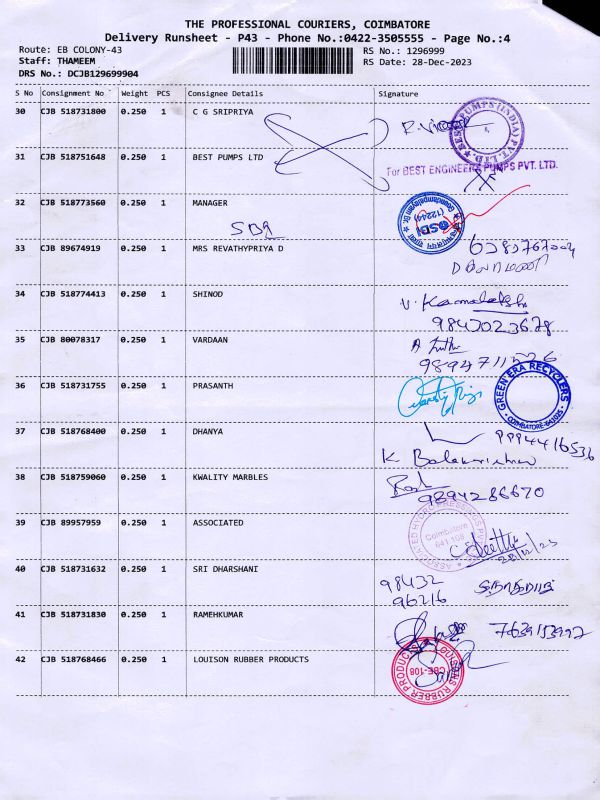 THE PROFESSIONAL COURIERS, COIMBATORE
Delivery Runsheet - P43 - Phone No.:0422-3505555 - Page No.:4
Route: EB COLONY-43 RS No.: 1296999
Staff: THAMEEM RS Date: 28-Dec-2023
DRS No.: DCJB129699904
S No Consignment No Weight PCS Consignee Details Signature
30 CJB 518731800 0.250 1 C G SRIPRIYA
BEST PUMPS (INDIA) PVT.LTD.
31 CJB 518751648 0.250 1 BEST PUMPS LTD
For BEST ENGINEERS PUMPS PVT. LTD.
32 CJB 518773560 0.250 1 MANAGER
SBI
(12249)
SBI
33 CJB 89674919 0.250 1 MRS REVATHYPRIYA D
34 CJB 518774413 0.250 1 SHINOD
35 CJB 80078317 0.250 1 VARDAAN
36 CJB 518731755 0.250 1 PRASANTH
GREEN ERA RECYCLERS
COIMBATORE-641025
37 CJB 518768400 0.250 1 DHANYA
9994416536
K Balakrishnan
38 CJB 518759060 0.250 1 KWALITY MARBLES
9894286670
39 CJB 89957959 0.250 1 ASSOCIATED
Coimbatore
641 108
28/12/23
40 CJB 518731632 0.250 1 SRI DHARSHANI
98432
96216
41 CJB 518731830 0.250 1 RAMEHKUMAR
42 CJB 518768466 0.250 1 LOUISON RUBBER PRODUCTS
CBE-108